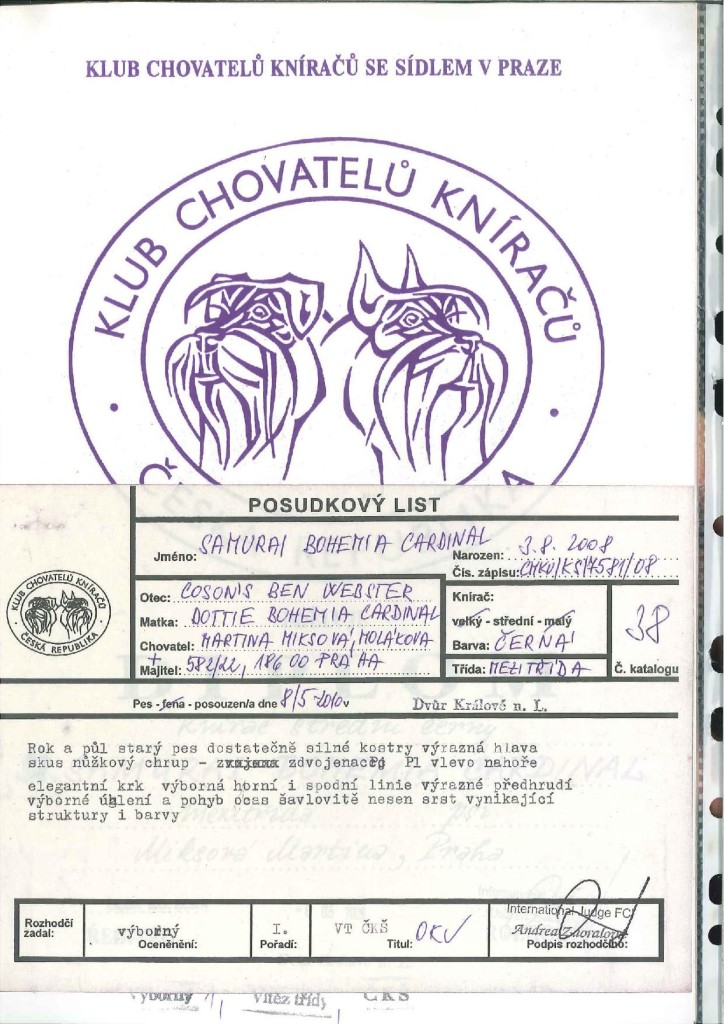 KLUB CHOVATELŮ KNÍRAČŮ SE SÍDLEM V PRAZE
KLUB CHOVATELŮ KNÍRAČŮ
POSUDKOVÝ LIST
Jméno: SAMURAI BOHEMIA CARDINAL
Narozen: 3.8. 2008
Čís. zápisu: CMKU/KS/7581/08
KLUB CHOVATELŮ KNÍRAČŮ
ČESKÁ REPUBLIKA
Otec: COSONIS BEN WEBSTER
Matka: DOTTIE BOHEMIA CARDINAL
Chovatel: MARTINA MIKSOVÁ, MOLÁKOVA
+
Majitel: 582/22, 186 00 PRAHA
Knírač:
velký - střední - malý
Barva: ČERNÁ
Třída: MEZITŘÍDA
38
Č. katalogu
Pes - fena - posouzen/a dne 8/5 2010 v Dvůr Králové n. L.
Rok a půl starý pes dostatečně silné kostry výrazná hlava
skus nůžkový chrup - zdvojena P1 vlevo nahoře
elegantní krk výborná horní i spodní linie výrazné předhrudí
výborné úhlení a pohyb ocas šavlovitě nesen srst vynikající
struktury i barvy
Miksová Martina, Praha
Rozhodčí
zadal:
výborný
Ocenění:
I.
Pořadí:
VT ČKŠ
Titul: OKV
International Judge FCI
Andrea Zdoralová
Podpis rozhodčího:
výborný 1, Vítěz třídy ČKŠ